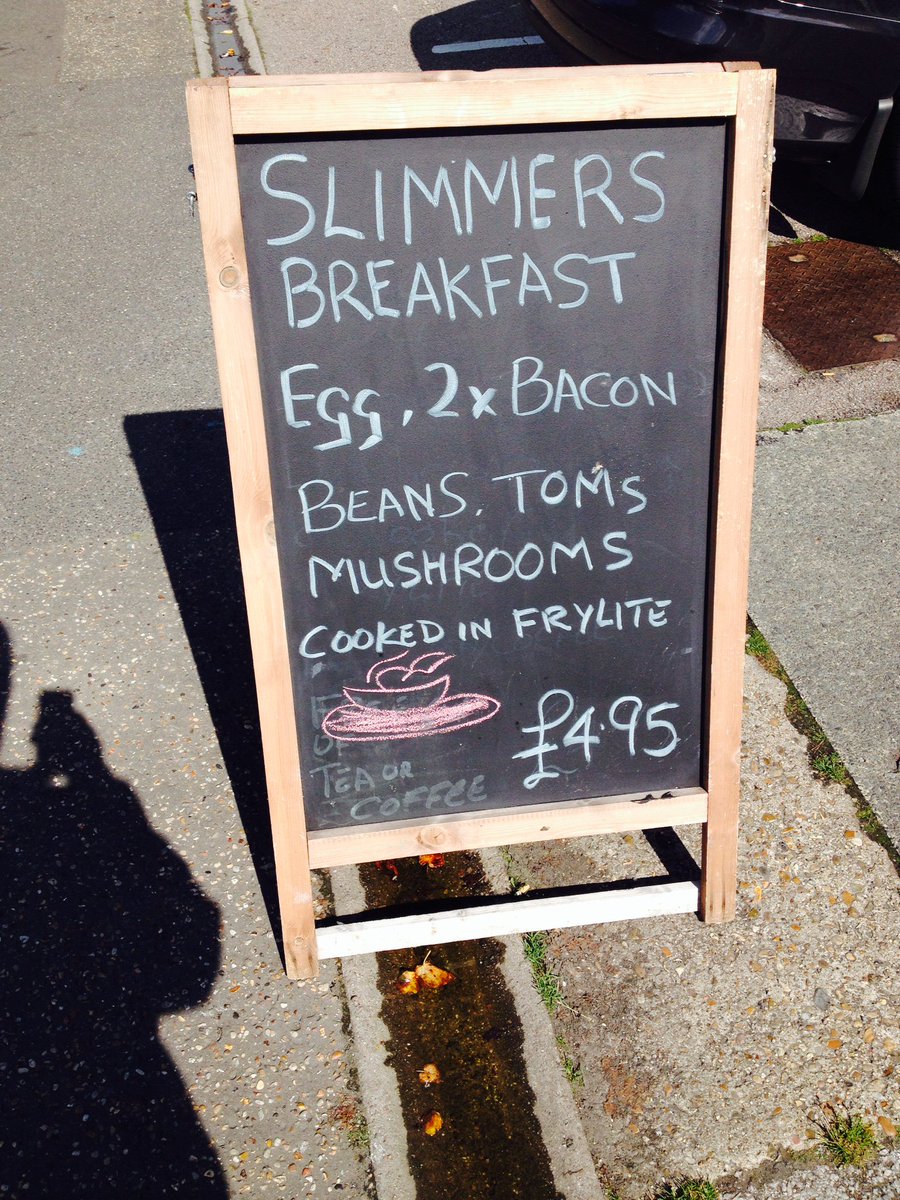 SLIMMERS
BREAKFAST
Egg, 2x BACON
BEANS. TOMS
MUSHROOMS
COOKED IN FRYLITE
£4.95
TEA OR
COFFEE